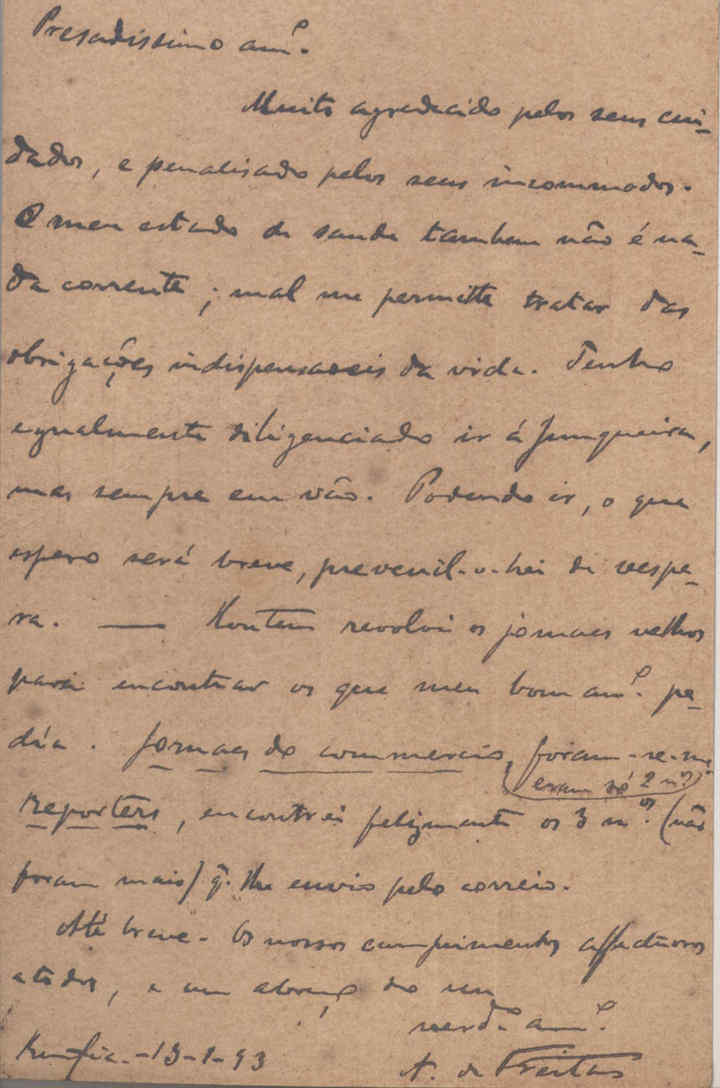 Presadissimo am.º
Muito agradecido pelos seus cui-
dados, e penalisado pelos seus incommodos.
O meu estado de saude tambem não é na-
da corrente; mal me permitte tratar das
obrigações indispensaveis da vida. Tenho
egualmente diligenciado ir á Junqueira,
mas sempre em vão. Podendo ir, o que
espero será breve, prevenil-o-hei de vespe-
ra. — Hontem revolvi os jornaes velhos
para encontrar os que meu bom am.º pe-
dia. Jornaes do commercio, foram-se-me
(eram só 2 n.os)
Reporters, encontrei felizmente os 3 n.os (não
foram mais) q. lhe envio pelo correio.
Até breve. Os nossos cumprimentos affectuosos
a todos, e um abraço do seu
verd.º am.º
13-1-93
A. de Freitas